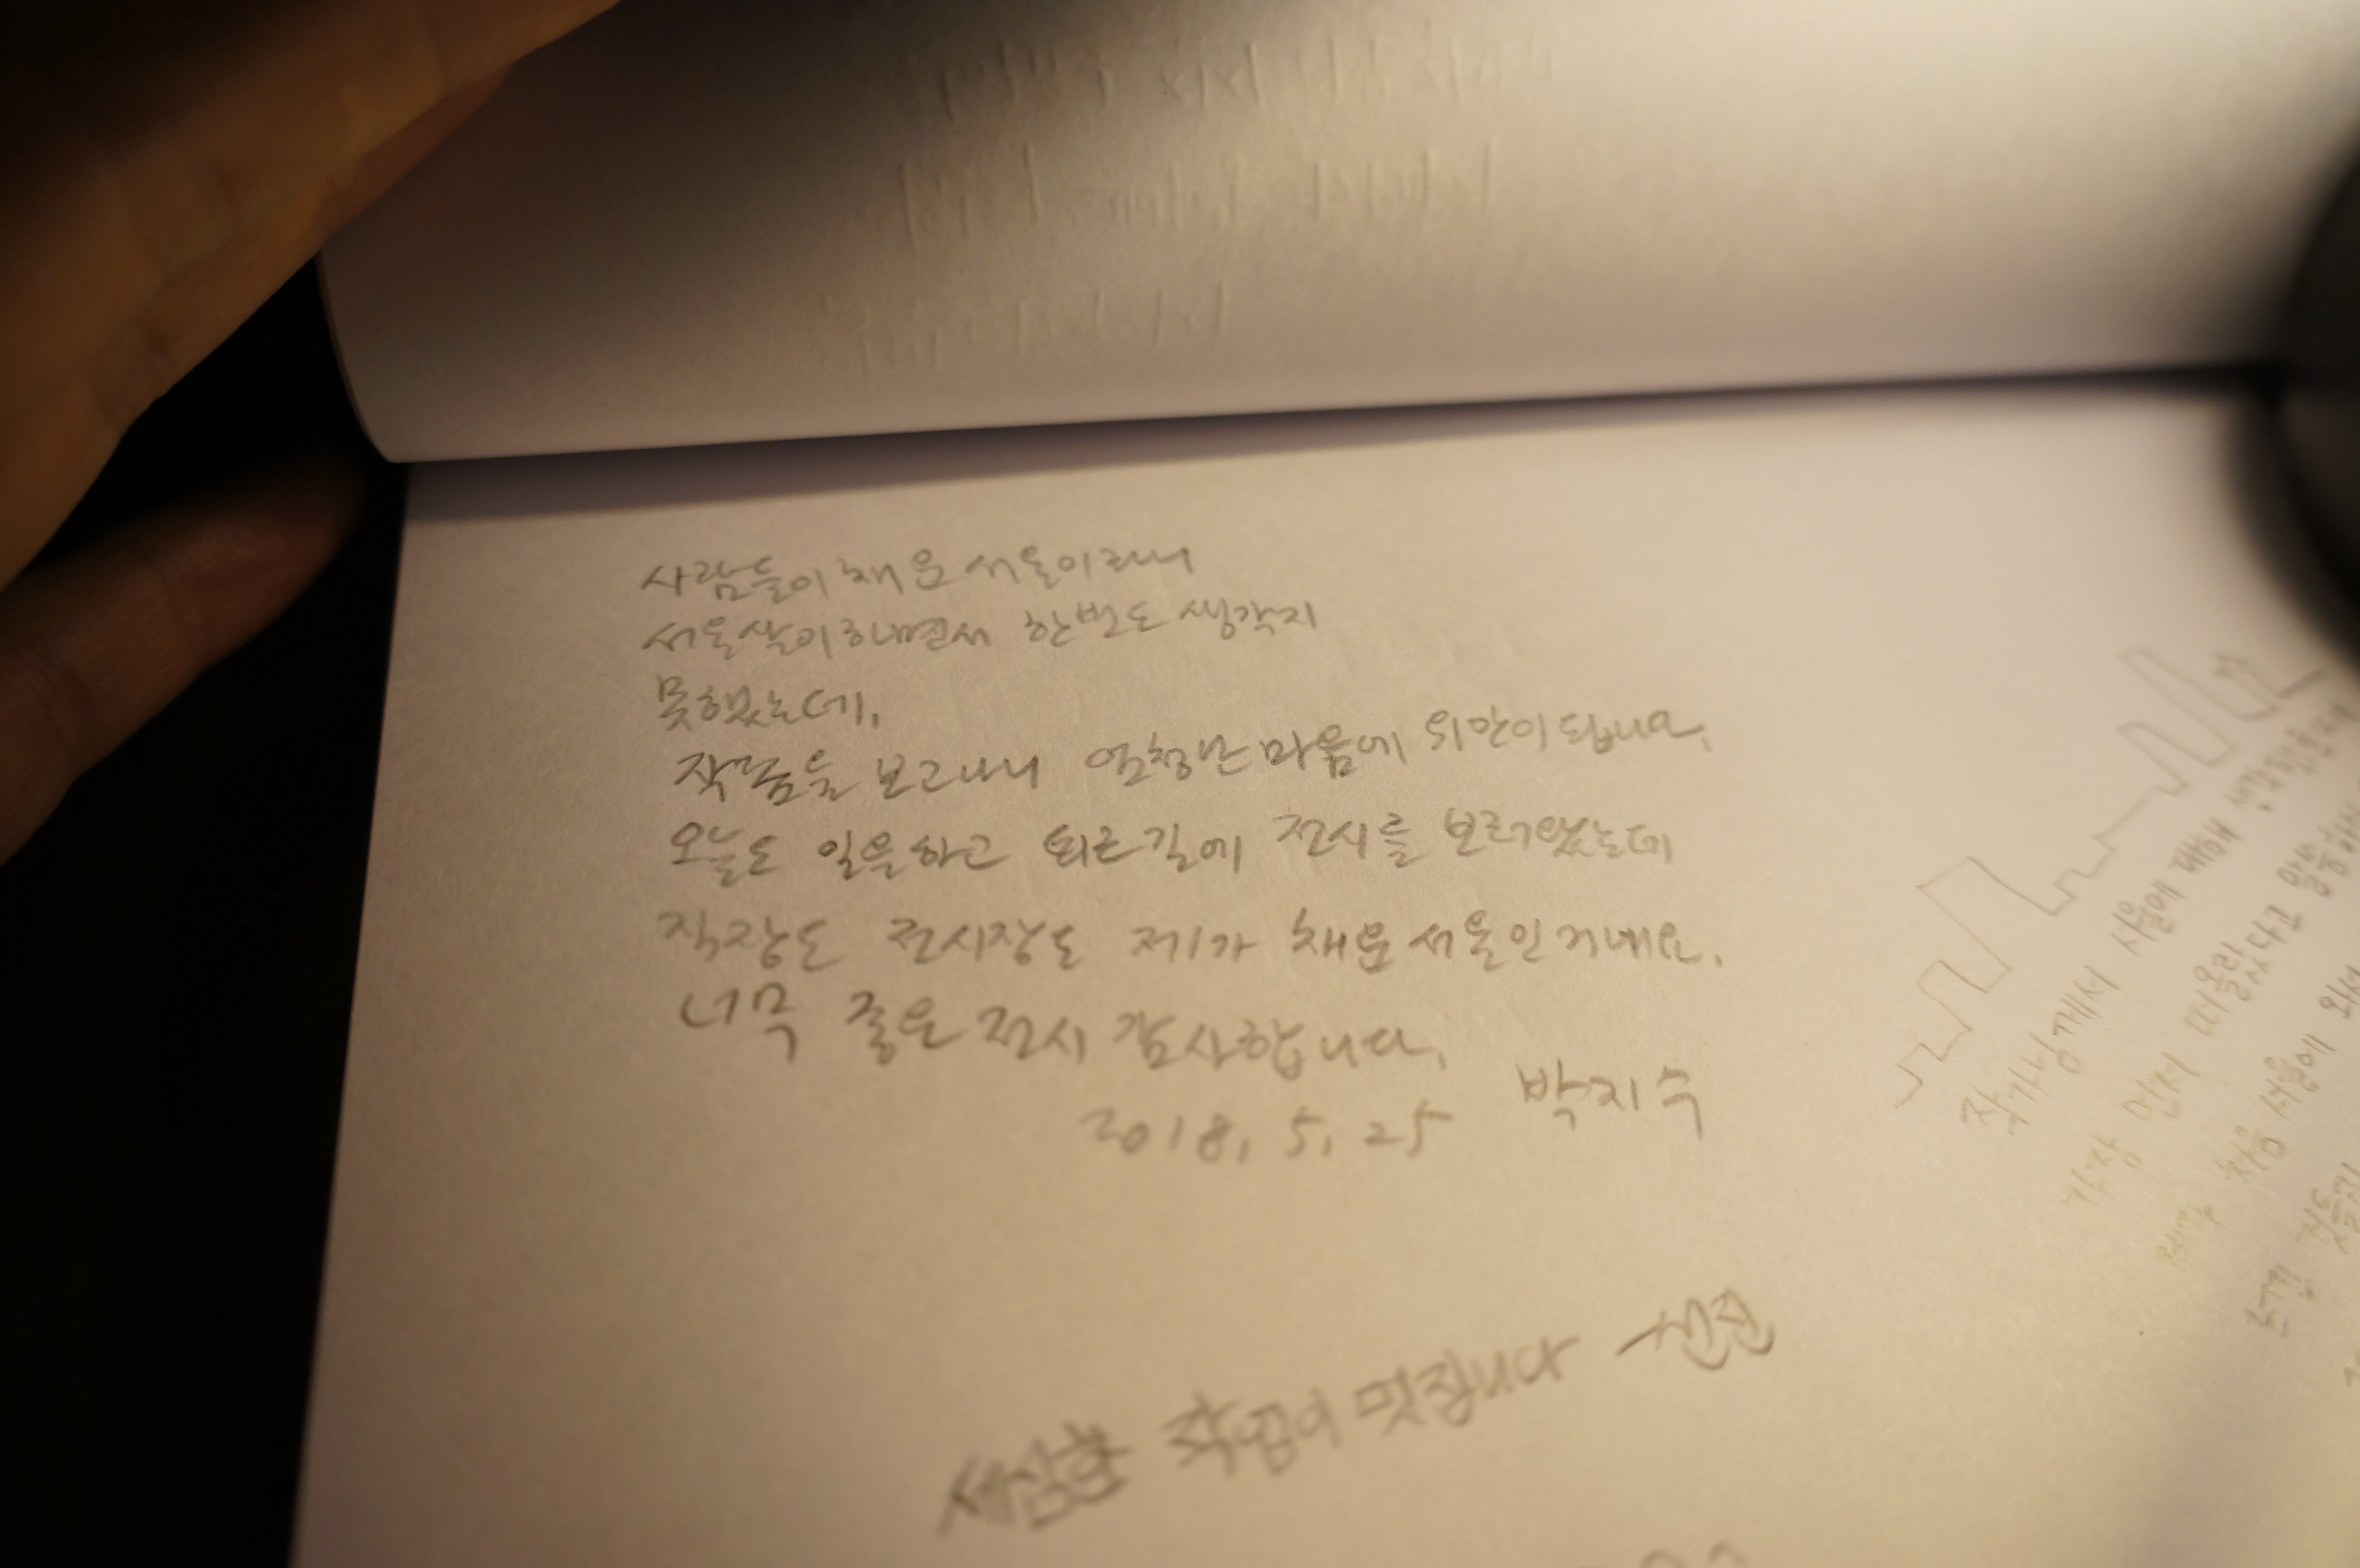 사람들이 채운 서울이라니
서울살이하면서 한번도 생각지
못했는데,
작품을 보고나니 엄청난 마음에 위안이 됩니다.
오늘도 일을하고 퇴근길에 전시를 보러왔는데
직장도 전시장도 제가 채운 서울인거네요.
너무 좋은 전시 감사합니다.
박지수
2018. 5. 25
세심한 작업이 멋집니다
작가님께서 서울에 대해 생각하면
가장 먼저 떠올랐다고 말씀
제가 처음 서울에 와서
느낀